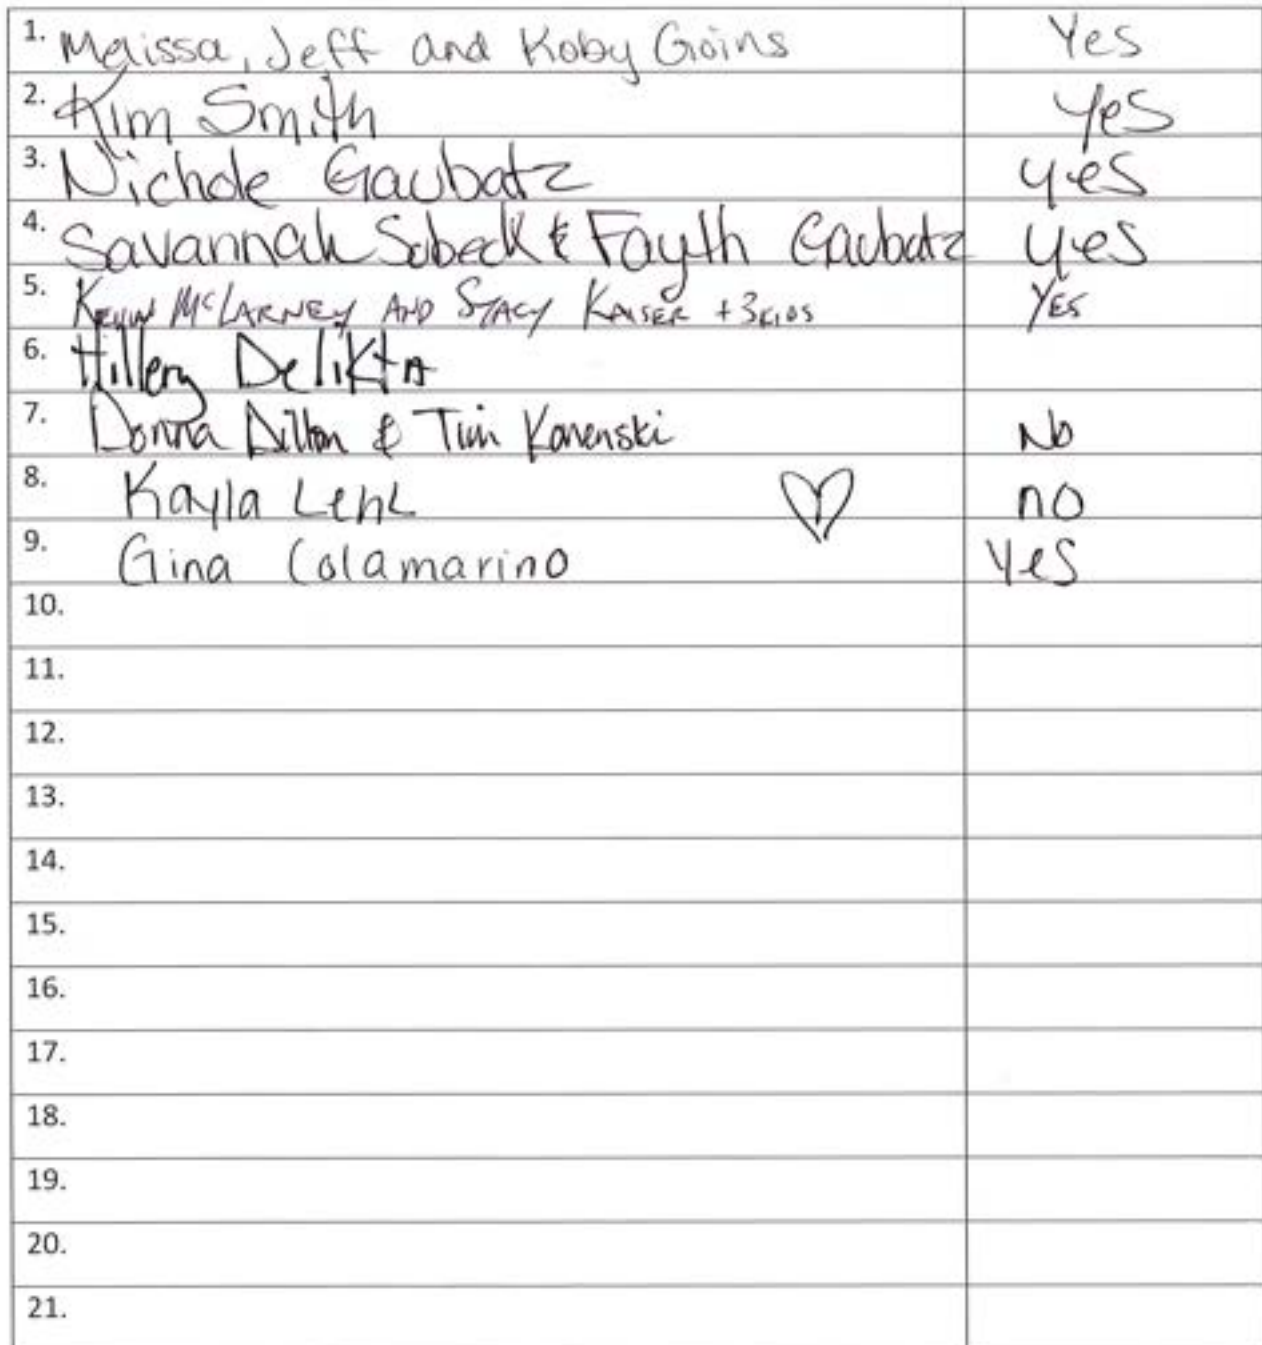 1. Melissa, Jeff and Koby Goins Yes
2. Kim Smith yes
3. Nichole Gaubatz yes
4. Savannah Sobeck & Fayth Gaubatz yes
5. Kevin McLarney AND Stacy Kaiser +3kids Yes
6. Hillery Delikta
7. Donna Dillon & Tim No
8. Kayla Lehl no
9. Gina Colamarino Yes
10.
11.
12.
13.
14.
15.
16.
17.
18.
19.
20.
21.